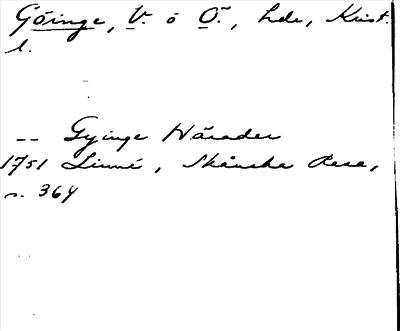 Göinge, V. o Ö., hdr, Krist.
l.
-- Gyinge Härader
1751 Linné, Skånska Resa,
s. 364